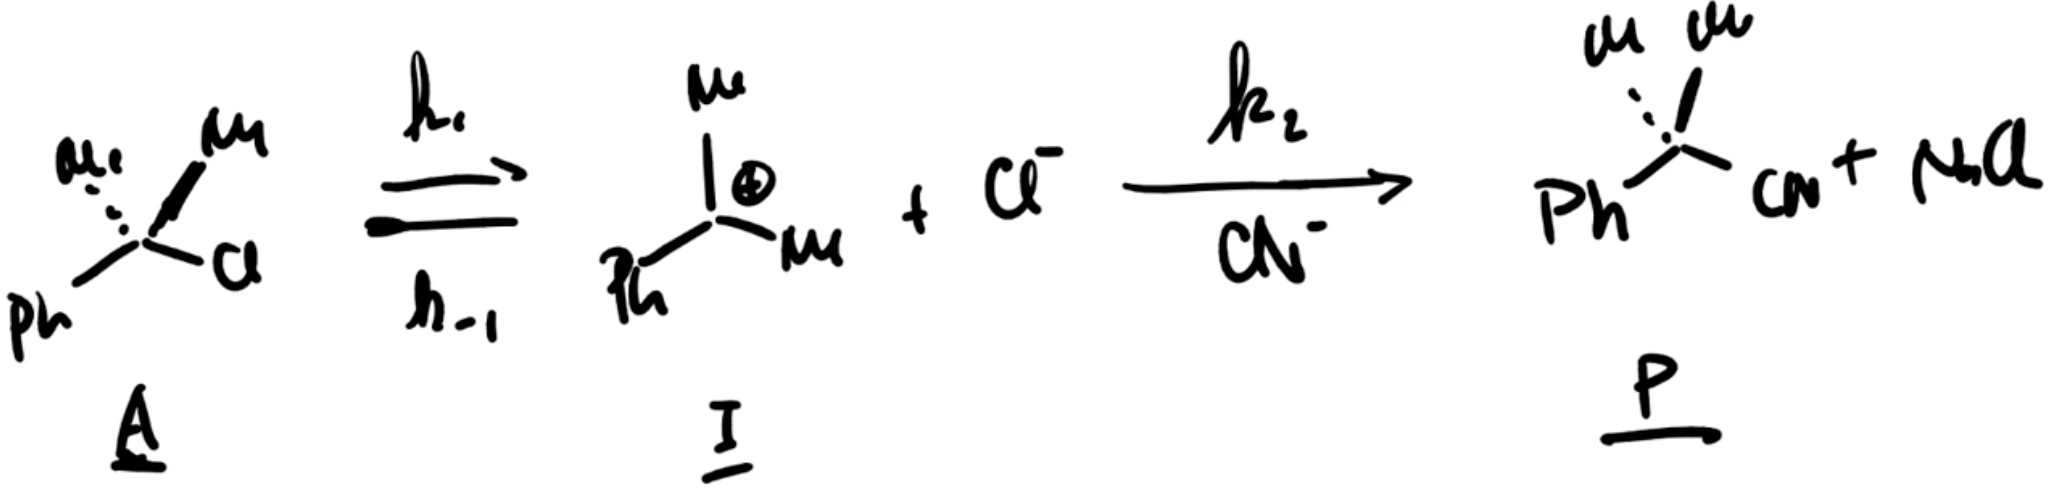 Me Me Ph Cl
k₁
k₋₁
Me ⊕ Ph Me + Cl⁻
k₂
CN⁻
Me Me Ph CN + NaCl
A
I
P